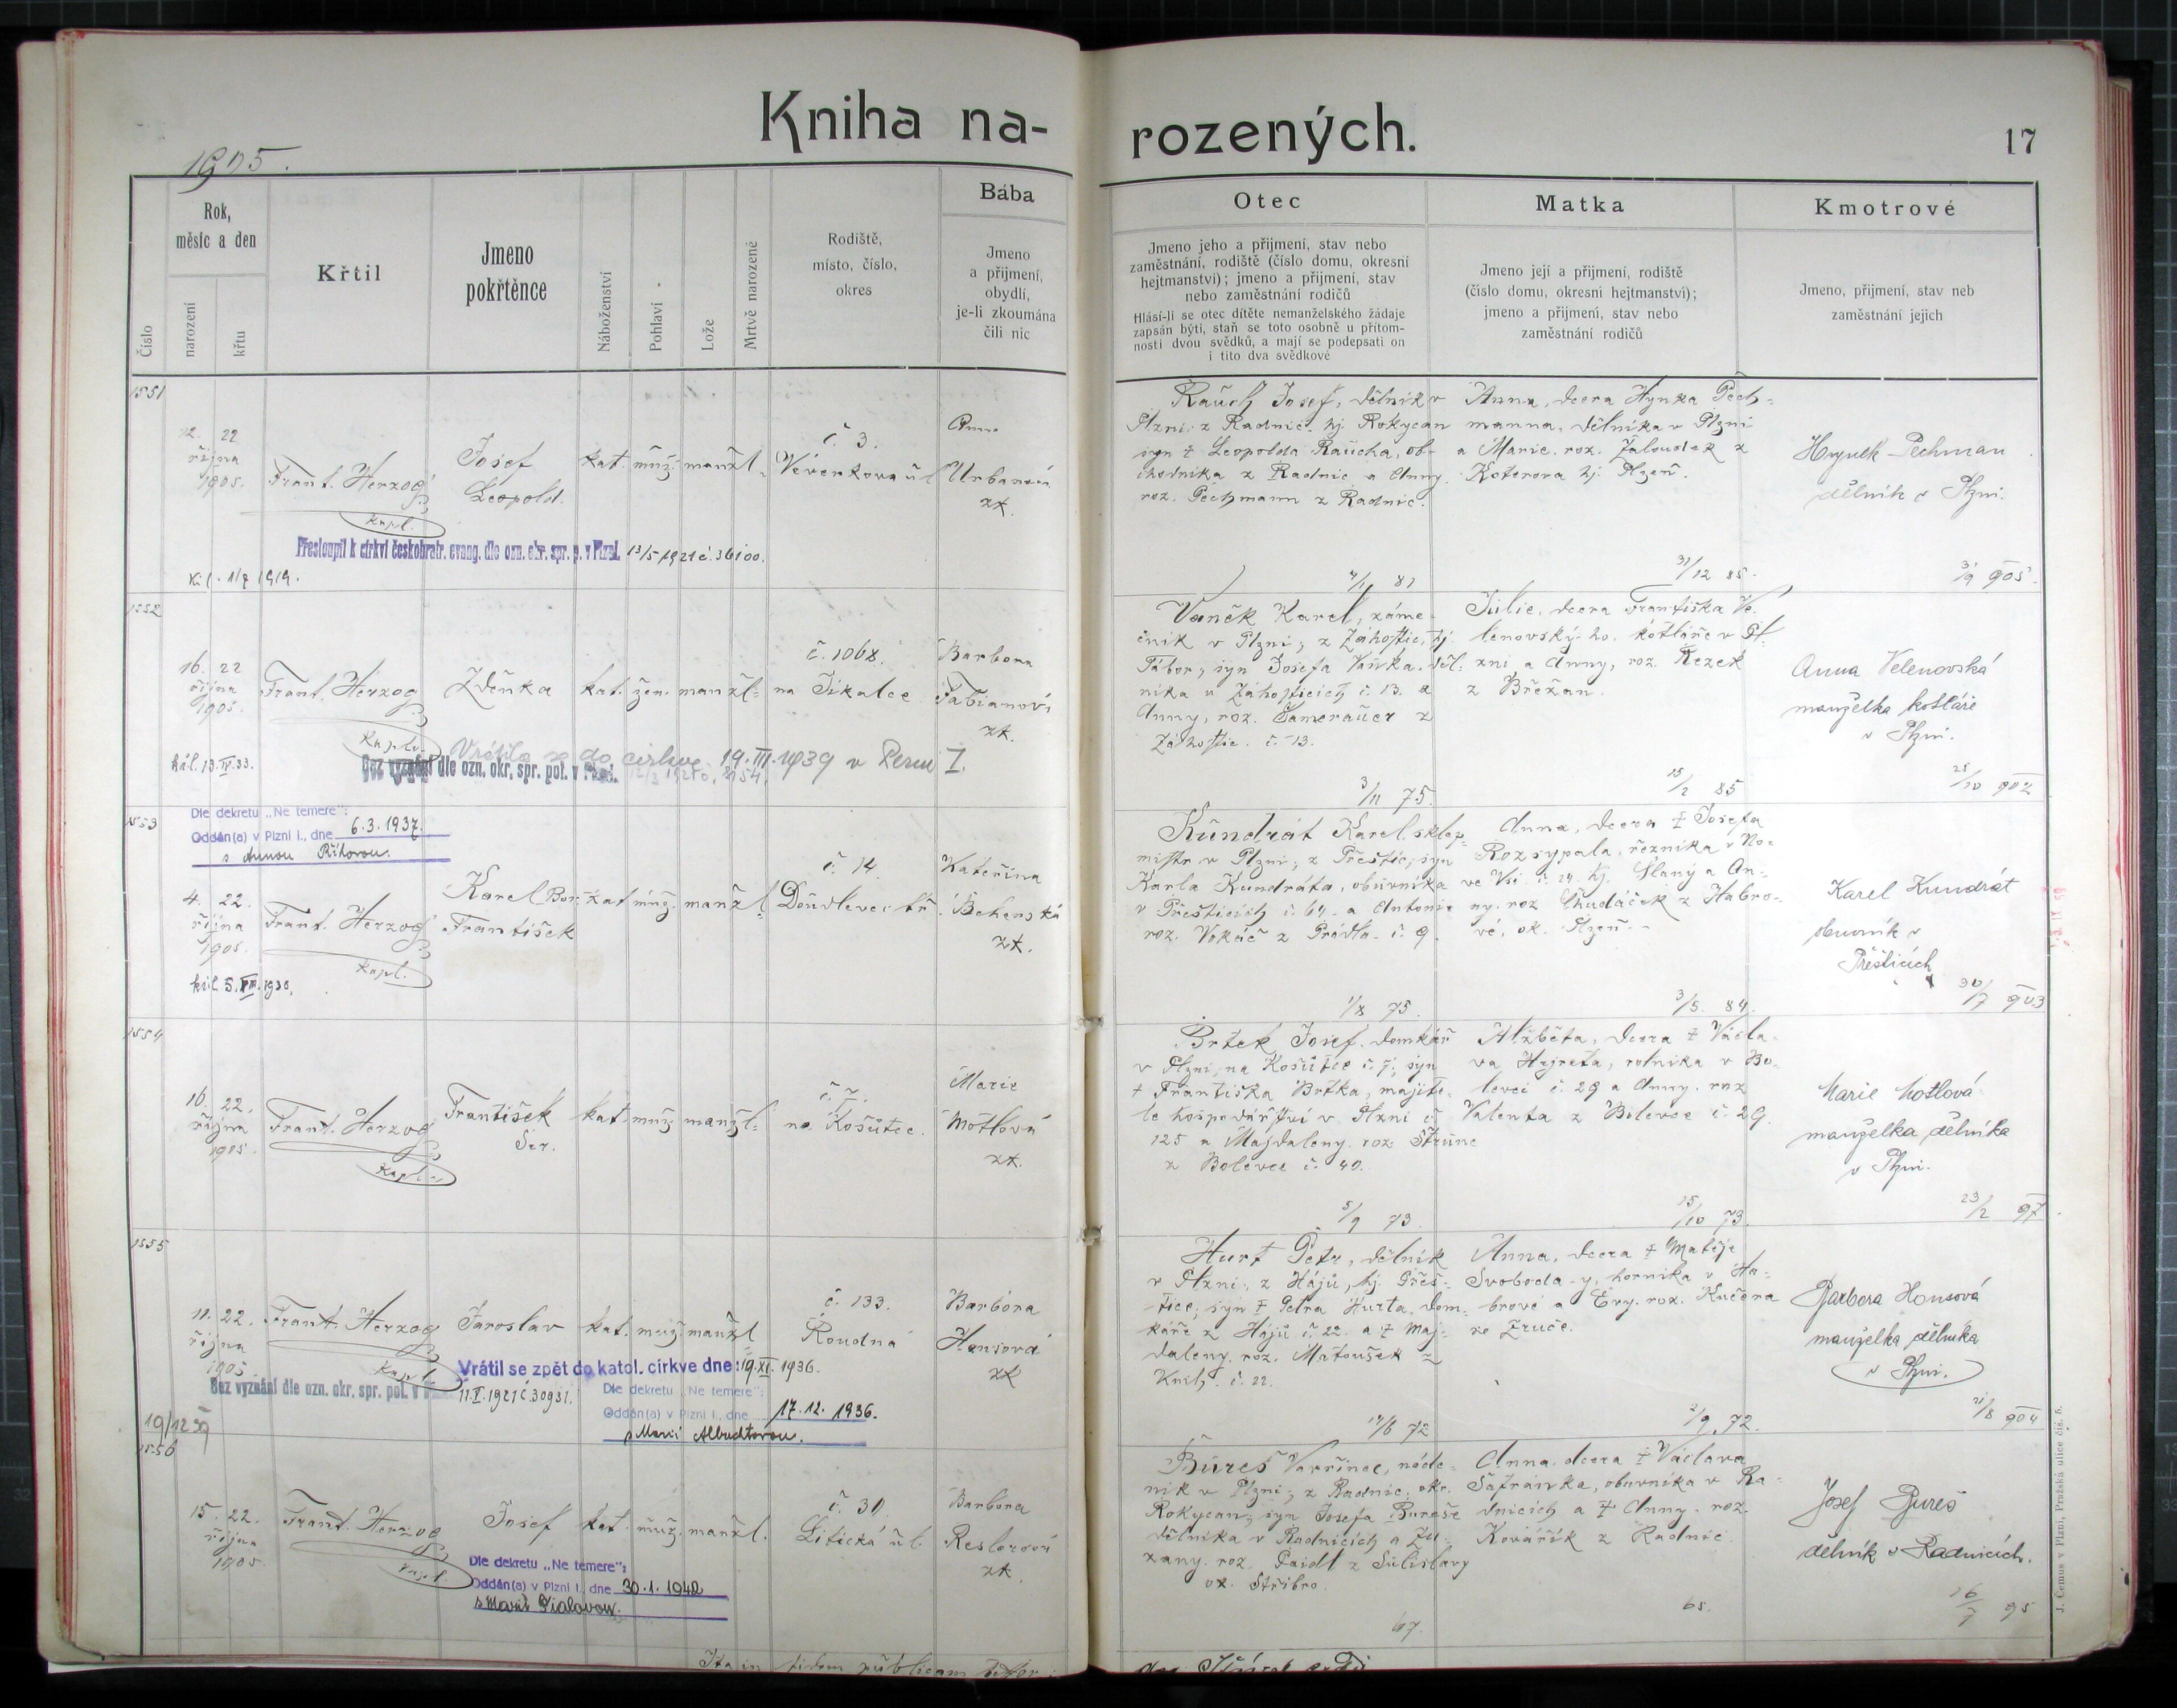 Kniha na-
rozených.
17
1905.
Číslo
Rok,
měsíc a den
narození
křtu
Křtil
Jmeno
pokřtěnce
Náboženství
Pohlaví
Lože
Mrtvě narozené
Rodiště,
místo, číslo,
okres
Bába
Jmeno
a přijmení,
obydlí,
je-li zkoumána
čili nic
Otec
Jmeno jeho a přijmení, stav nebo
zaměstnání, rodiště (číslo domu, okresní
hejtmanství); jmeno a přijmení, stav
nebo zaměstnání rodičů
Hlásí-li se otec dítěte nemanželského žádaje
zapsán býti, staň se toto osobně u přítom-
nosti dvou svědků, a mají se podepsati on
i tito dva svědkové
Matka
Jmeno její a přijmení, rodiště
(číslo domu, okresní hejtmanství);
jmeno a přijmení, stav nebo
zaměstnání rodičů
Kmotrové
Jmeno, přijmení, stav neb
zaměstnání jejich
1551
22
října
1905.
Frant. Herzog
kapl.
Josef
Leopold.
kat.
muž.
manžl.
č. 3.
Veverkova ul
Anna
Urbanová
zk.
Přestoupil k církvi českobratr. evang. dle ozn. okr. spr. p. v Plzni. 13/5 1921 č. 36100.
Rauch Josef, dělník v
Plzni z Radnic, hj. Rokycan
syn † Leopolda Raucha, ob-
chodníka z Radnic a Anny
roz. Pechmann z Radnic.
Anna, dcera Hynka Pech-
manna, dělníka v Plzni
a Marie, roz. Žaloudek z
Koterova hj. Plzeň.
31/12 85.
Hynek Pechman
dělník v Plzni.
1552
16. 22
října
1905.
Frant. Herzog
kapl.
Zdeňka
kat.
žen.
manžl.
č. 1068.
na Jikalce
Barbora
Fabianová
zk.
bil. 13.IV.33.
Vrátila se do církve 19.III.1939 v Plzni I.
Bez vyznání dle ozn. okr. spr. pol. v Plzni.
Vaněk Karel, záme-
čník v Plzni; z Záhostic, hj.
Tábor, syn Josefa Vaňka, děl-
níka v Záhosticích č. 13. a
Anny, roz. Samerauer z
Záhostic č. 13.
3/11 75.
Julie, dcera Františka Ve-
lenovský-ho, kotláře v Pl-
zni a Anny, roz. Rezek
z Břežan.
15/2 85
Anna Velenovská
manželka kotláře
v Plzni.
25/10 902
1553
Dle dekretu „Ne temere":
Oddán(a) v Plzni I., dne 6.3.1937.
s Annou
4. 22.
října
1905.
Frant. Herzog
kapl.
Karel Bor.
František
kat
muž.
manžl.
č. 14.
Doudlevec. tř.
Kateřina
Behenská
zk.
Kundrát Karel, sklep-
mistr v Plzni; z Přeštic, syn
Karla Kundráta, obuvníka
v Přešticích č. 64. a Antonie
roz. Vokáč z Prádla č. 9.
1/8 75.
Anna, dcera † Josefa
Rozsypala, řezníka v No-
ve Vsi č. 24. hj. Slaný a An-
ny, roz. Chudáček z Habro-
vé, ok. Plzeň.
3/5. 84.
Karel Kundrát
obuvník v
Přešticích
30/7 903
1554
16. 22.
října
1905.
Frant. Herzog
Kapl.
František
Ser.
kat.
muž
manžl.
č. 7.
na Košutce.
Marie
Motlová
zk.
Brtek Josef, domkář
v Plzni, na Košutce č. 7; syn
† Františka Brtka, majite-
le hospodářství v Plzni č.
125 a Majdaleny, roz. Strunc
z Bolevce č. 40.
5/9 73
Alžběta, dcera † Václa-
va Hajreta, rolníka v Bo-
levci č. 29 a Anny, roz
Valenta z Bolevce č. 29.
15/10 73.
Marie Motlová
manželka dělníka
v Plzni.
23/2 97
1555
11. 22.
října
1905
Frant. Herzog
Kapl.
Jaroslav
kat.
muž.
manžl
č. 133.
Roudná
Barbora
Honsová
zk
Vrátil se zpět do katol. církve dne: 19.XI. 1936.
Bez vyznání dle ozn. okr. spr. pol. v
Dle dekretu „Ne temere":
Oddán(a) v Plzni I., dne 17.12. 1936.
s Marií Albrechtovou.
Hurt Petr, dělník
v Plzni, z Hájů, hj. Přeš-
tice; syn † Petra Hurta, dom-
káře z Hájů č. 22. a † Maj-
daleny, roz. Matoušek z
Knih č. 22.
Anna, dcera † Matěje
Svoboda-y, horníka v Ha-
brové a Evy, roz. Kučera
ze Zruče.
2/9. 72.
Barbora Honsová
manželka dělníka
v Plzni.
21/8 904
1556
15. 22.
října
1905.
Frant. Herzog
kapl.
Josef
kat.
muž.
manžl.
č. 30.
Litická ul.
Barbora
Reslerová
zk
Dle dekretu „Ne temere":
Oddán(a) v Plzni I., dne 30.1.1942
s Marií Fialovou.
Bureš Vavřinec, náde-
ník v Plzni; z Radnic, okr.
Rokycan, syn Josefa Bureše
dělníka v Radnicích a Zu-
zany, roz. Paidl z Sulislavy
ok. Stříbro.
67.
Anna, dcera † Václava
Šafránka, obuvníka v Ra-
dnicích a † Anny, roz.
Kovářík z Radnic
65.
Josef Bureš
dělník v Radnicích.
16/7 95
J. Čemus v Plzni, Pražská ulice čís. 5.
Ita in fidem publicam